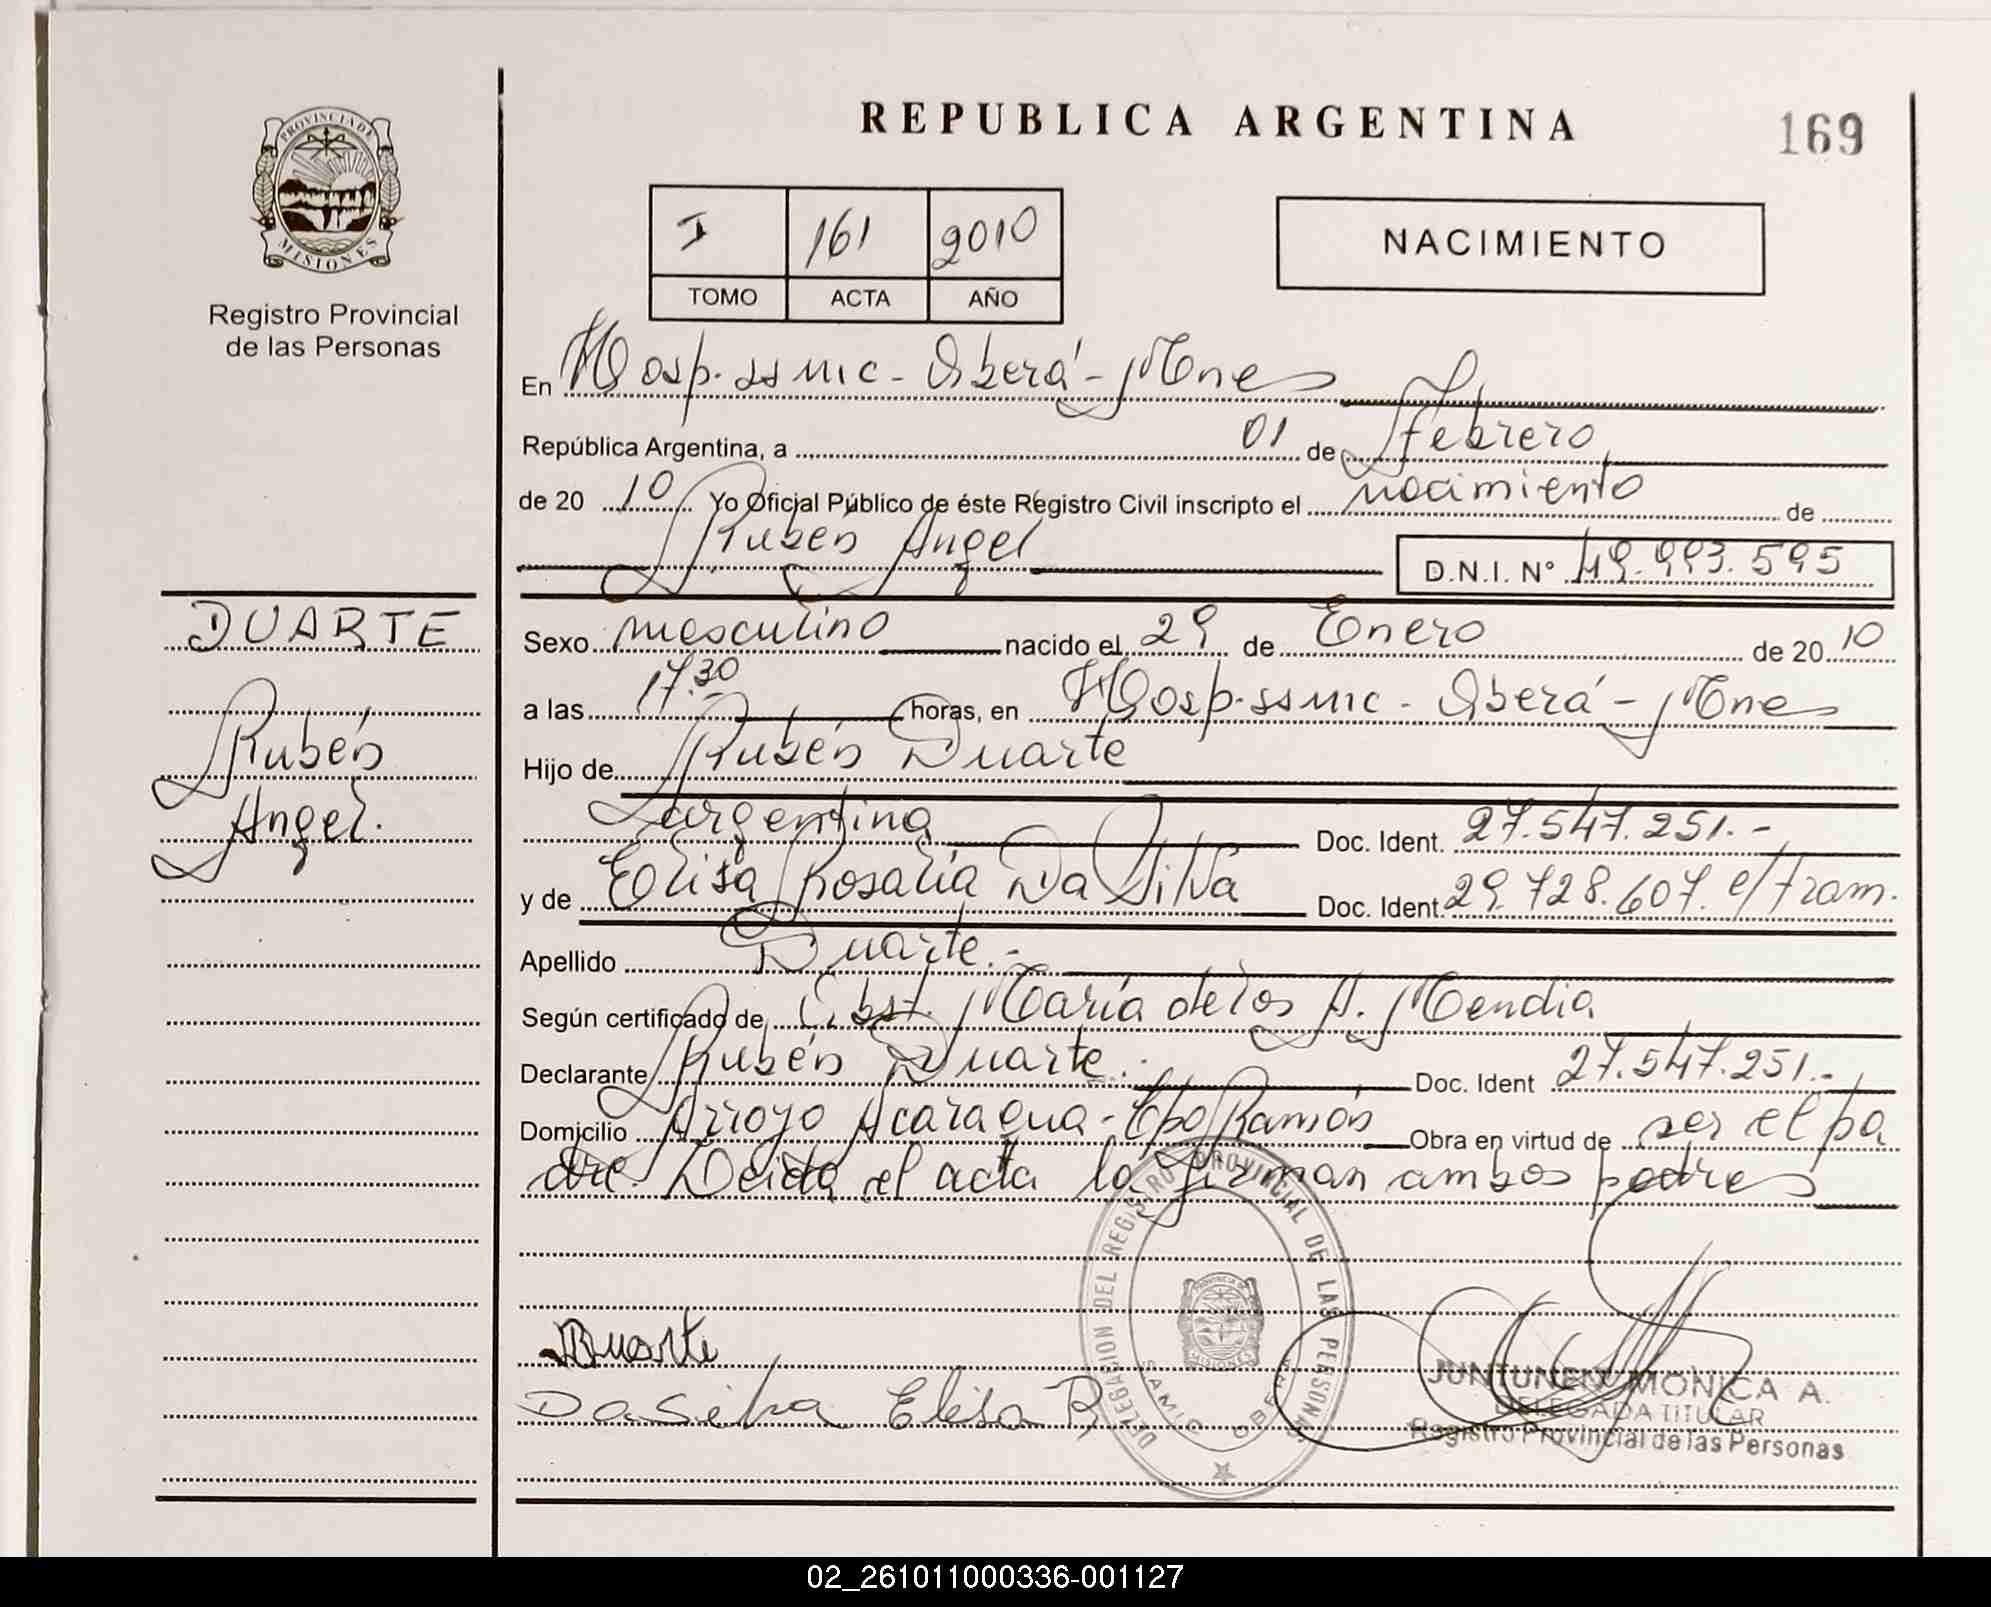 PROVINCIA DE
MISIONES
Registro Provincial
de las Personas
DUARTE
Rubén
Angel.
REPUBLICA ARGENTINA
169
I 161 2010
TOMO ACTA AÑO
NACIMIENTO
En Hosp. ssmic - Oberá - Mnes
República Argentina, a 01 de febrero
de 20 10 Yo Oficial Público de éste Registro Civil inscripto el nacimiento de
Rubén Angel D.N.I. N° 49.993.595
Sexo masculino nacido el 29 de Enero de 20 10
a las 17.30 horas, en Hosp. ssmic - Oberá - Mnes
Hijo de Rubén Duarte
argentino Doc. Ident. 27.547.251.-
y de Elisa Rosalia Da Silva Doc. Ident. 29.728.607. e/tram.
Apellido Duarte.-
Según certificado de Obst. María de los A. Mendia
Declarante Rubén Duarte. Doc. Ident 27.547.251.-
Domicilio Arroyo Acaragua - Cpo Ramón Obra en virtud de ser el pa
dre. Leida el acta la firman ambos padres
Duarte
Da Silva Elisa R
DELEGACION DEL REGISTRO PROVINCIAL DE LAS PERSONAS
PROVINCIA DE
MISIONES
SAMIC OBERA
JUNTUNEN MONICA A.
DELEGADA TITULAR
Registro Provincial de las Personas
02_261011000336-001127